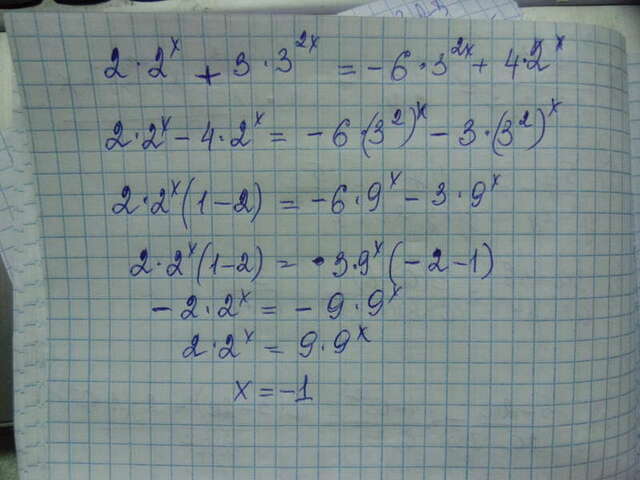 2·2^x + 3·3^{2x} = -6·3^{2x} + 4·2^x
2·2^x - 4·2^x = -6·(3^2)^x - 3·(3^2)^x
2·2^x(1-2) = -6·9^x - 3·9^x
2·2^x(1-2) = 3·9^x(-2-1)
-2·2^x = -9·9^x
2·2^x = 9·9^x
x = -1